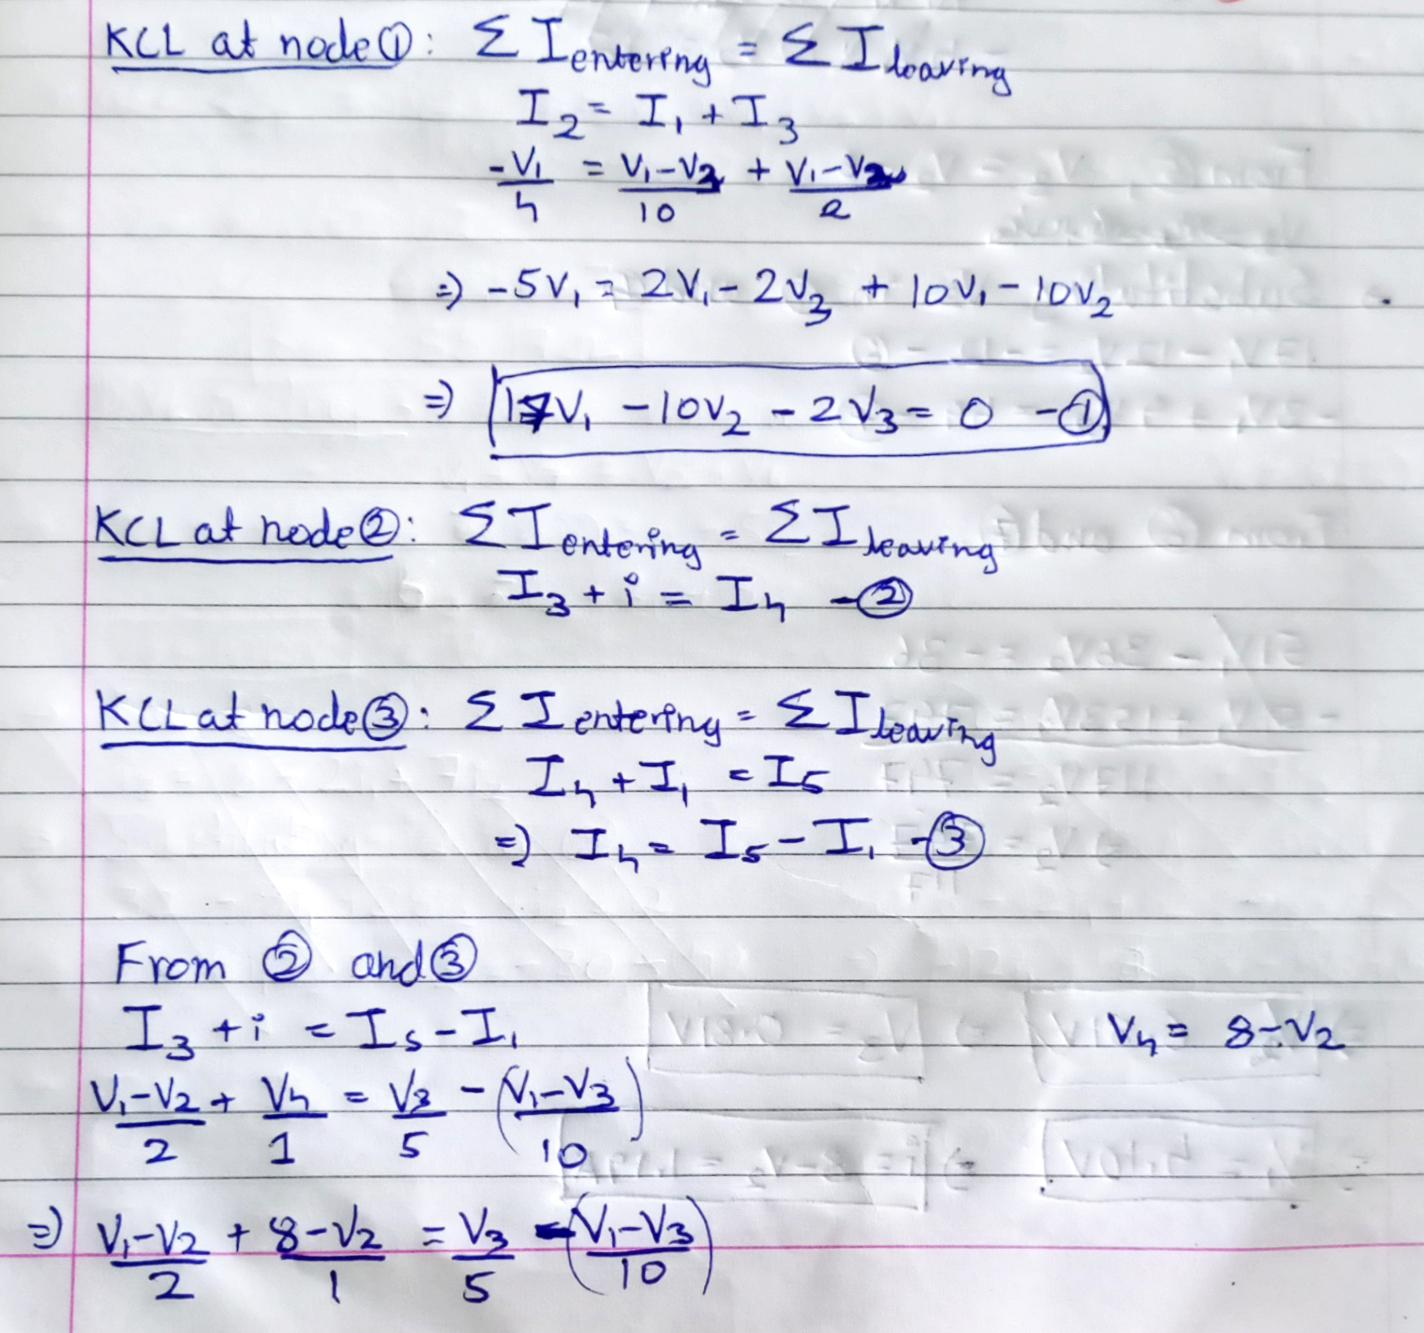 KCL at node①: Σ I entering = Σ I leaving
I₂ = I₁ + I₃
-V₁/4 = (V₁-V₃)/10 + (V₁-V₂)/2
⇒ -5V₁ = 2V₁ - 2V₃ + 10V₁ - 10V₂
⇒ 17V₁ - 10V₂ - 2V₃ = 0 -①
KCL at node②: Σ I entering = Σ I leaving
I₃ + i = I₄ -②
KCL at node③: Σ I entering = Σ I leaving
I₄ + I₁ = I₅
⇒ I₄ = I₅ - I₁ -③
From ② and ③
I₃ + i = I₅ - I₁
V₄ = 8-V₂
(V₁-V₂)/2 + V₄/1 = V₃/5 - ((V₁-V₃)/10)
⇒ (V₁-V₂)/2 + (8-V₂)/1 = V₃/5 - ((V₁-V₃)/10)